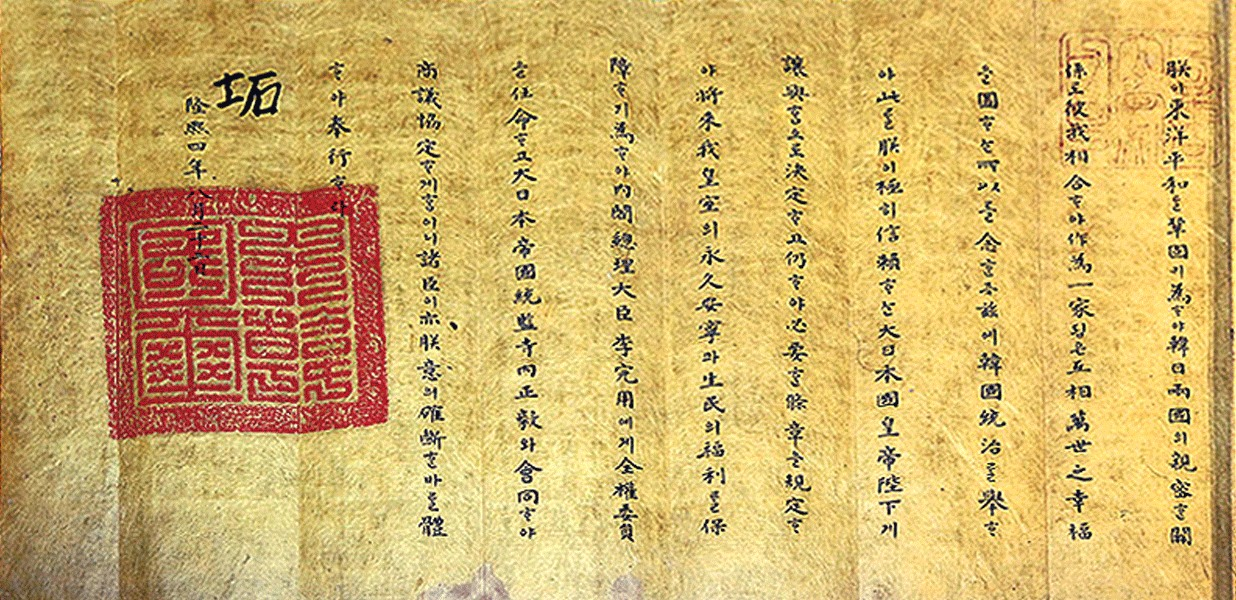 朕이 東洋平和를 鞏固히 爲ᄒᆞ야 韓日兩國의 親密ᄒᆞᆫ 關
係로 彼我相合ᄒᆞ야 作爲一家됨은 互相萬世之幸福
을 圖ᄒᆞᄂᆞᆫ 所以로 念ᄒᆞᆫ즉 玆에 韓國統治를 擧ᄒᆞ
야 此를 朕이 極히 信賴ᄒᆞᄂᆞᆫ 大日本國皇帝陛下게
讓與ᄒᆞ므로 決定ᄒᆞ고 仍ᄒᆞ야 必要ᄒᆞᆫ 條章을 規定ᄒᆞ
야 將來我皇室의 永久安寧과 生民의 福利를 保
障ᄒᆞ기 爲ᄒᆞ야 內閣總理大臣李完用에게 全權委員
을 任命ᄒᆞ고 大日本帝國統監寺內正毅와 會同ᄒᆞ야
商議協定ᄒᆞ게ᄒᆞᆷ이니 諸臣이 亦朕意의 確斷ᄒᆞᆫ바를 體
ᄒᆞ야 奉行ᄒᆞ라
坧
隆熙四年八月二十二日